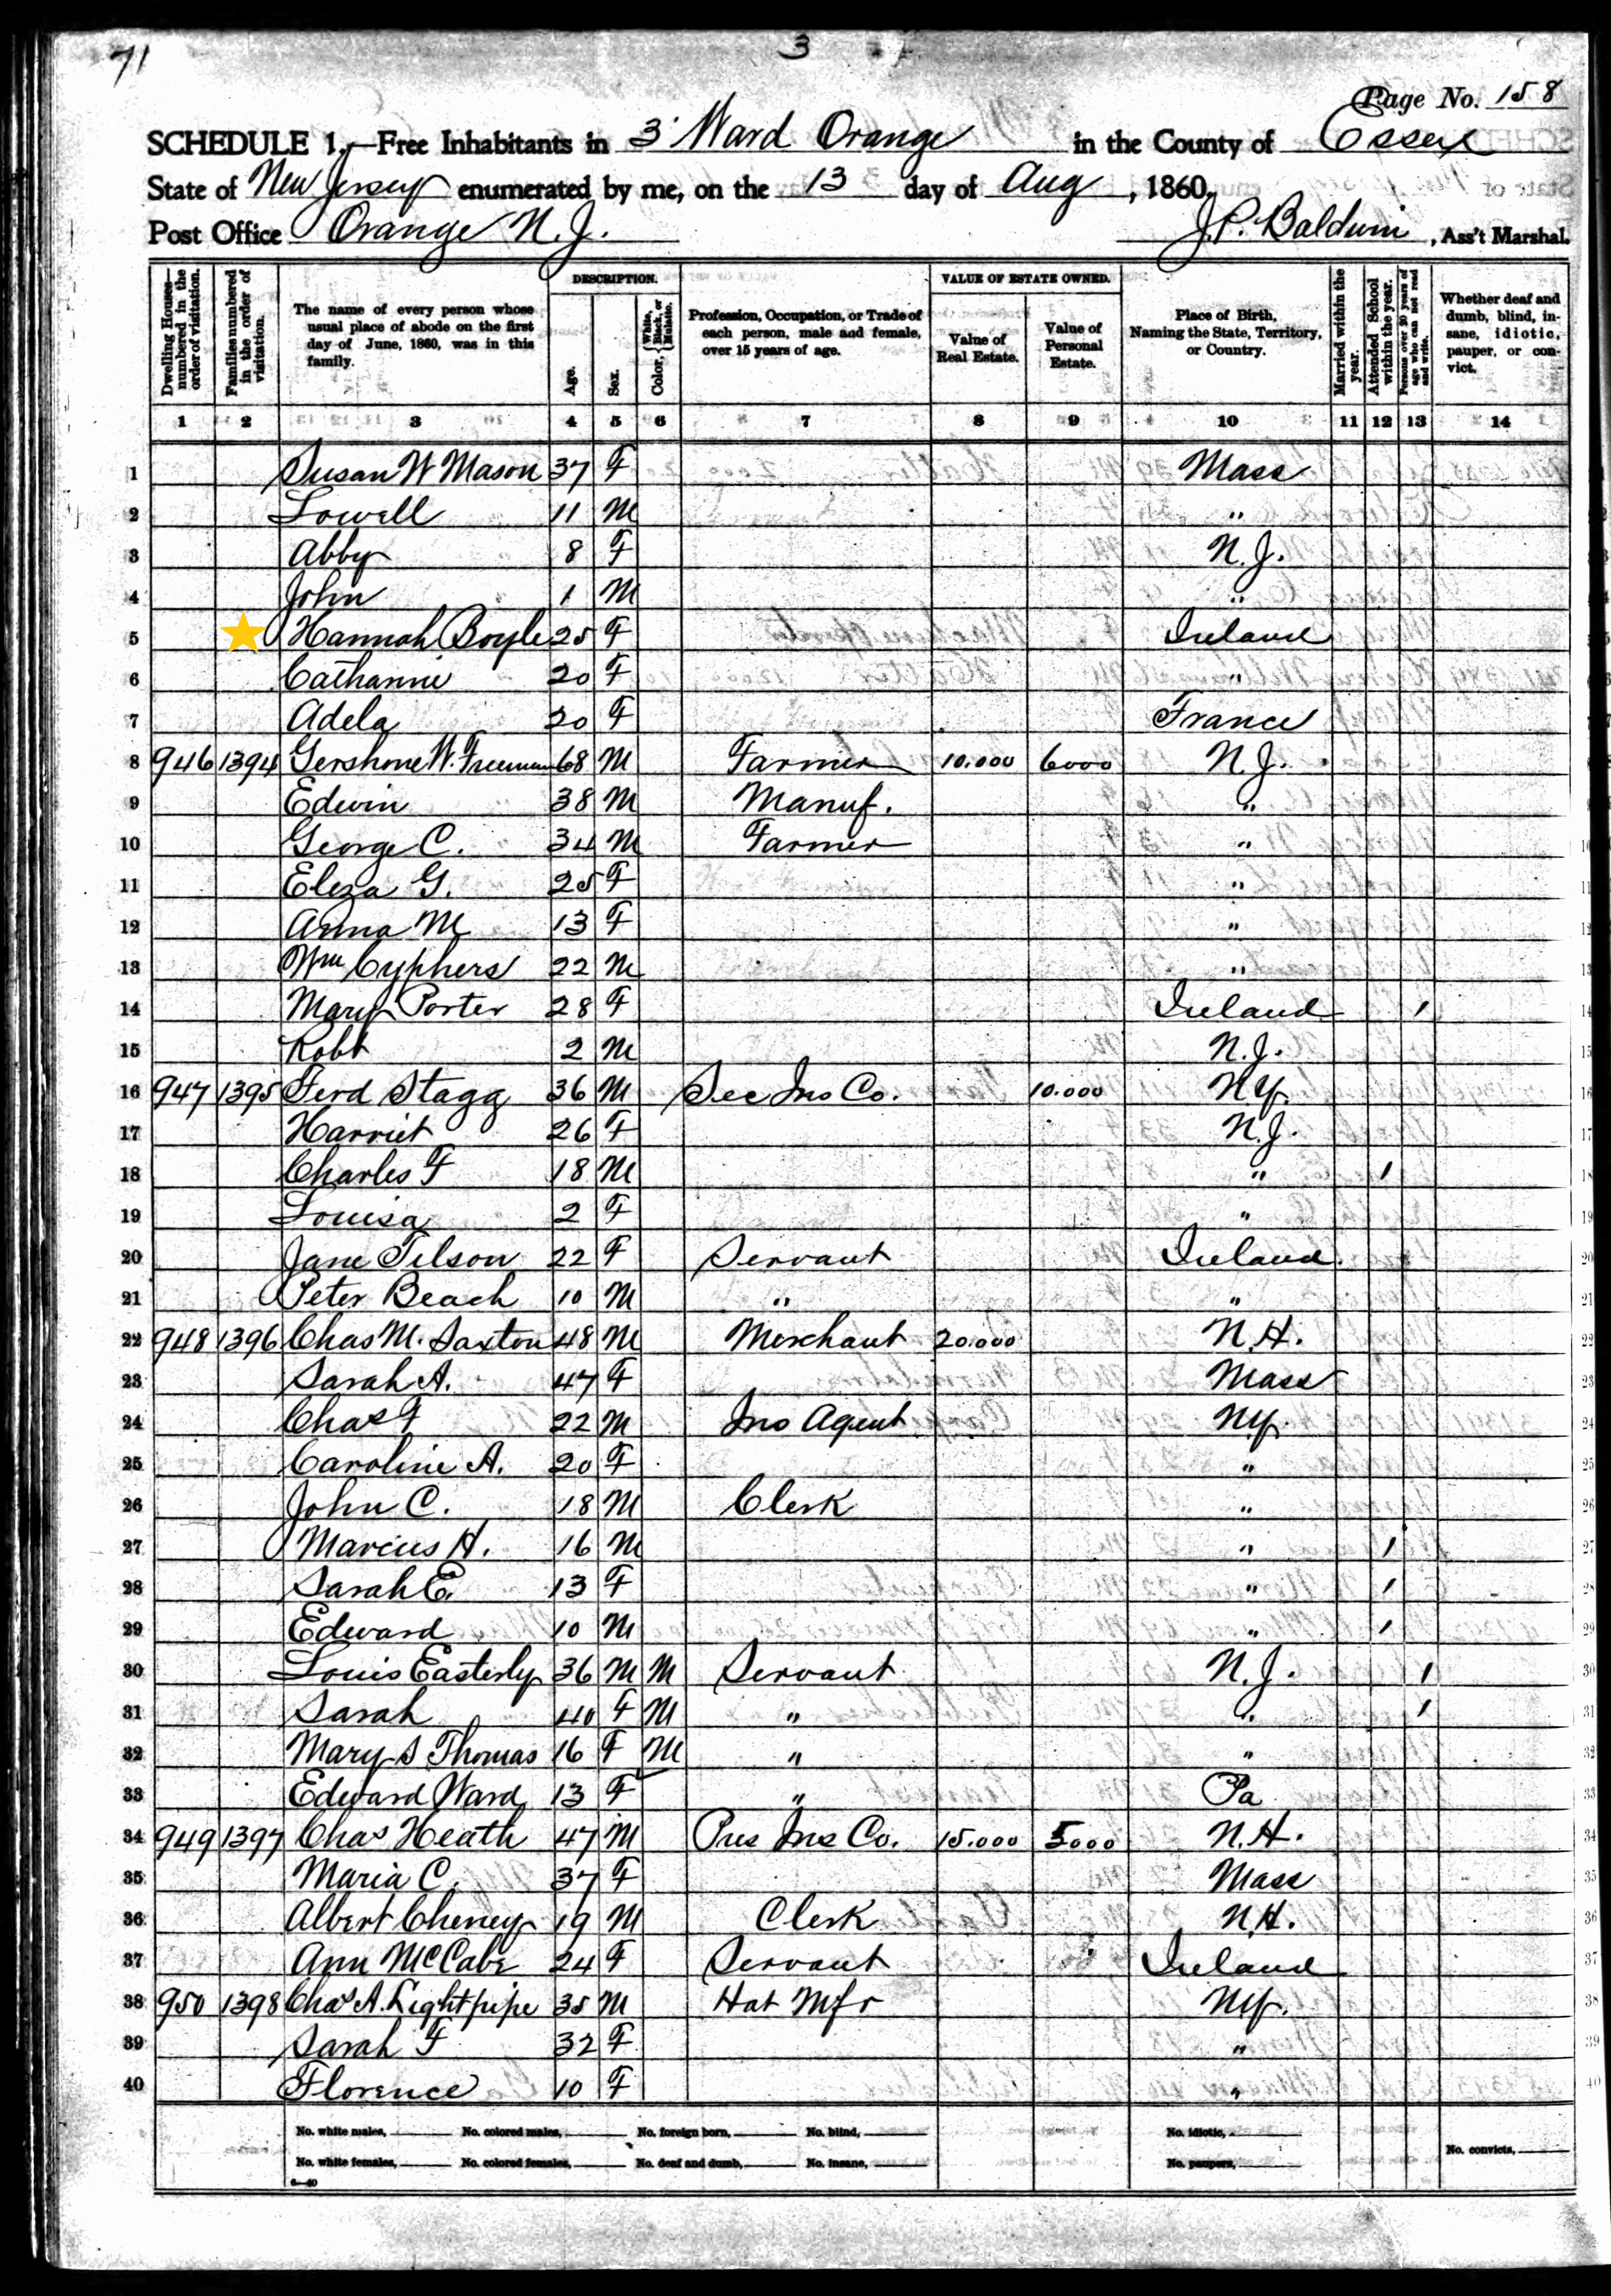 71
3
Page No. 158
SCHEDULE 1.—Free Inhabitants in 3' Ward Orange in the County of Essex
State of New Jersey enumerated by me, on the 13 day of Aug, 1860.
Post Office Orange N.J. J.P. Baldwin, Ass't Marshal.
Dwelling Houses—numbered in the order of visitation.
Families numbered in the order of visitation.
The name of every person whose usual place of abode on the first day of June, 1860, was in this family.
DESCRIPTION.
Age.
Sex.
Color, White, Black, or Mulatto.
Profession, Occupation, or Trade of each person, male and female, over 15 years of age.
VALUE OF ESTATE OWNED.
Value of Real Estate.
Value of Personal Estate.
Place of Birth, Naming the State, Territory, or Country.
Married within the year.
Attended School within the year.
Persons over 20 years of age who can not read and write.
Whether deaf and dumb, blind, insane, idiotic, pauper, or convict.
1 2 3 4 5 6 7 8 9 10 11 12 13 14
1 Susan W Mason 37 F Mass
2 Lowell 11 M "
3 Abby 8 F N.J.
4 John 1 M "
5 Hannah Boyle 25 F Ireland
6 Catharine 20 F "
7 Adela 20 F France
8 946 1394 Gershone W. Freeman 68 M Farmer 10.000 6000 N.J.
9 Edwin 38 M Manuf. "
10 George C. 34 M Farmer "
11 Eliza G. 25 F "
12 Anna M 13 F "
13 Wm Cyphers 22 M "
14 Mary Porter 28 F Ireland /
15 Robt 2 M N.J.
16 947 1395 Ferd Stagg 36 M Sec Ins Co. 10.000 N.Y.
17 Harriet 26 F N.J.
18 Charles F 18 M " /
19 Louisa 2 F "
20 Jane Tilson 22 F Servant Ireland
21 Peter Beach 10 M " "
22 948 1396 Chas M. Saxton 48 M Merchant 20.000 N.H.
23 Sarah A. 47 F Mass
24 Chas F 22 M Ins Agent N.Y.
25 Caroline A. 20 F "
26 John C. 18 M Clerk "
27 Marcius H. 16 M " /
28 Sarah E. 13 F " /
29 Edward 10 M " /
30 Louis Easterly 36 M M Servant N.J. /
31 Sarah 40 F M " " /
32 Mary S Thomas 16 F M " "
33 Edward Ward 13 F " Pa
34 949 1397 Chas Heath 47 M Pres Ins Co. 15.000 5000 N.H.
35 Maria C. 37 F Mass
36 Albert Cheney 19 M Clerk N.H.
37 Ann McCabe 24 F Servant Ireland
38 950 1398 Chas A. Lightpipe 35 M Hat Mfr N.Y.
39 Sarah F 32 F "
40 Florence 10 F "
No. white males, No. colored males, No. foreign born, No. blind, No. idiotic,
No. white females, No. colored females, No. deaf and dumb, No. insane, No. paupers, No. convicts,